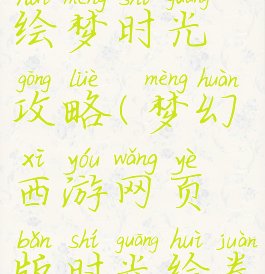 huàn mèng shí guāng
绘梦时光
gōng lüè mèng huàn
攻略(梦幻
xī yóu wǎng yè
西游网页
bǎn shí guāng huì juàn
版时光绘卷